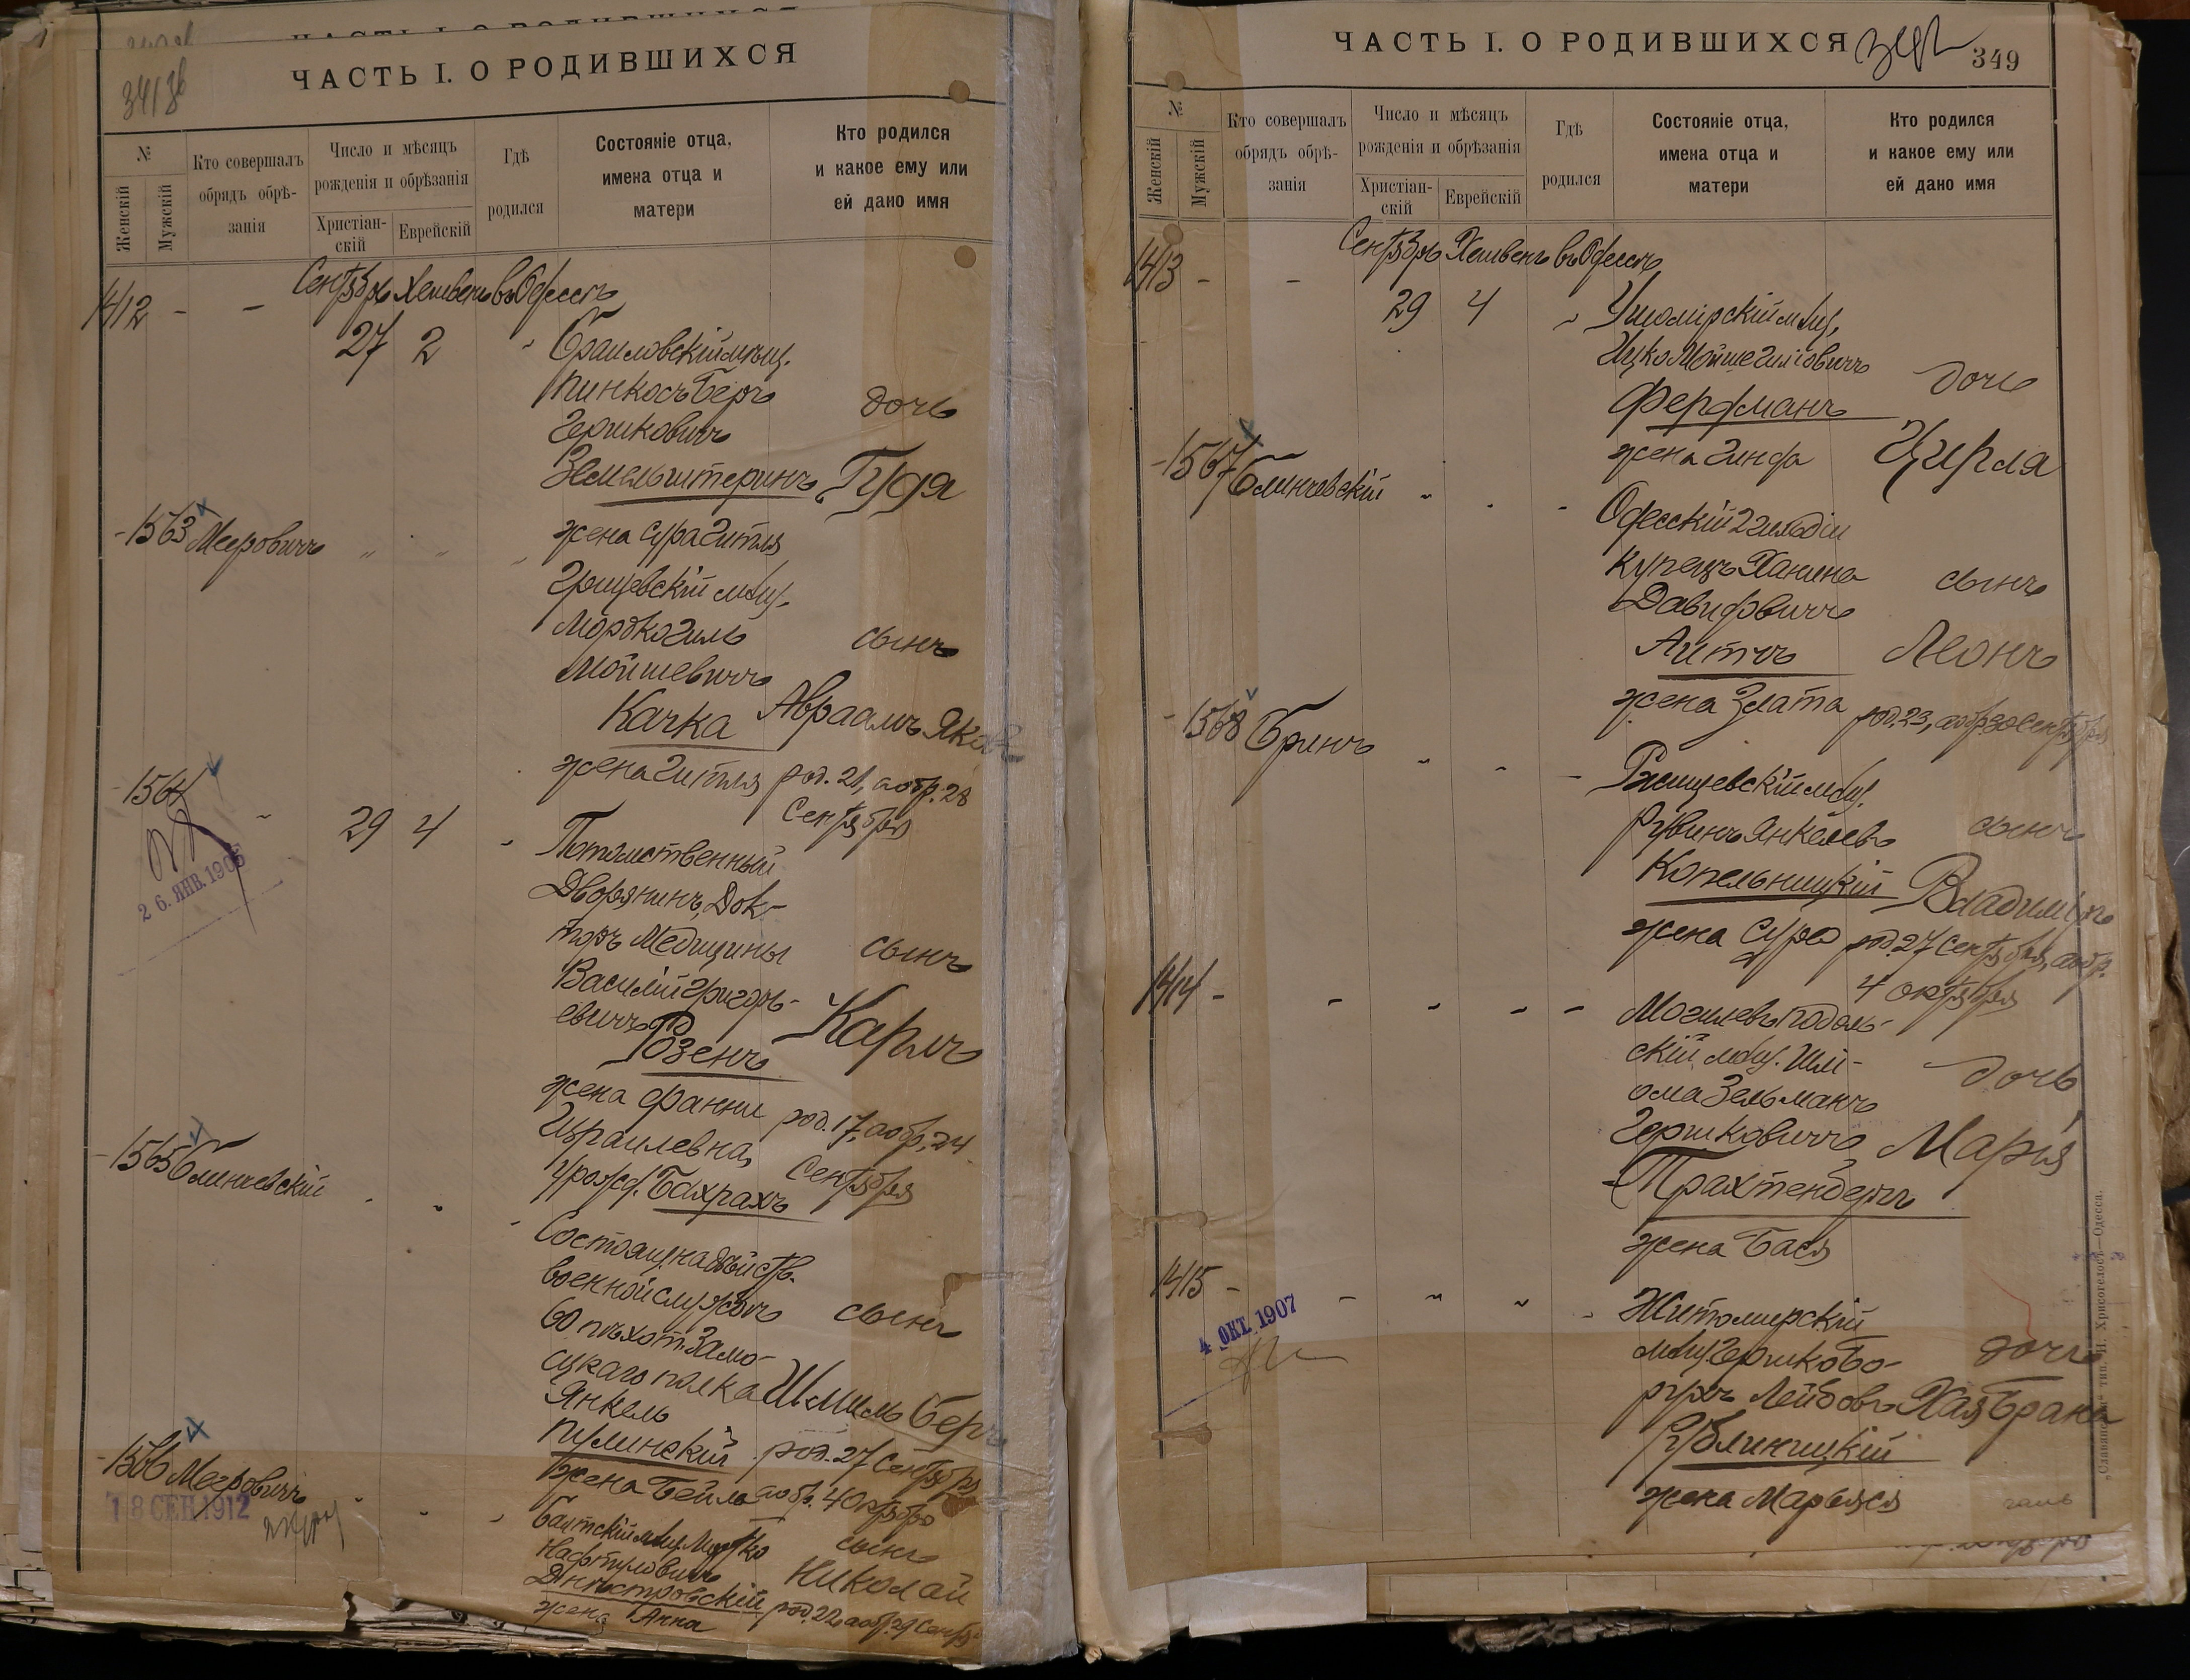 ЧАСТЬ I. О РОДИВШИХСЯ
№
Женскій
Мужскій
Кто совершалъ
обрядъ обрѣ-
занія
Число и мѣсяцъ
рожденія и обрѣзанія
Христіан-
скій
Еврейскій
Гдѣ
родился
Состояніе отца,
имена отца и
матери
Кто родился
и какое ему или
ей дано имя
Сентябрь Хешвенъ въ Одессѣ
1412 - -
27 2
Браиловскій мѣщ.
Пинкосъ Беръ
Гершковичъ
Земельштернъ
жена Сура Гитля
дочь
Гудя
1563 Мееровичъ
мѣщ.
Мордко Гиль
Мойшевичъ
Качка
жена Гитля
сынъ
Авраамъ Яковъ
род. 21, а обр. 28
Сентября
1564
26. ЯНВ. 1906
29 4
Потомственный
Дворянинъ, Док-
торъ Медицины
Василій Григорь-
евичъ
Розенъ
жена Фанни
Израилевна,
урожд. Бахрахъ
сынъ
Карлъ
род. 17, а обр. 24
Сентября
1565 Блинчевскій
Состоящ. на дѣйств.
военной службѣ
60 пѣхот. Замо-
сцкаго полка
Янкель
Пулинскій
жена Бейла
сынъ
Шмиль Беръ
род. 27 Сентября
а обр. 4 Октября
1566 Мееровичъ
18 СЕН 1912
Балтскій мѣщ. Мордко
Нафтуловичъ
Днѣстровскій
жена Анна
сынъ
Николай
род. 22, а обр. 29 Сентяб
ЧАСТЬ I. О РОДИВШИХСЯ
349
№
Женскій
Мужскій
Кто совершалъ
обрядъ обрѣ-
занія
Число и мѣсяцъ
рожденія и обрѣзанія
Христіан-
скій
Еврейскій
Гдѣ
родился
Состояніе отца,
имена отца и
матери
Кто родился
и какое ему или
ей дано имя
Сентябрь Хешвенъ въ Одессѣ
1413 - -
29 4
Ушомірскій мѣщ.
Ицко Мойше
Фердманъ
жена Гинда
дочь
Цирля
1567 Блинчевскій
Одесскій 2 гильдіи
купецъ Ханина
Давидовичъ
жена Злата
сынъ
Леонъ
род. 23, а обр. 30 Сентября
1568 Бринъ
Ржищевскій мѣщ.
Рувинъ Янкелевъ
Копельницкій
жена Сура
сынъ
Владиміръ
род. 27 Сентября, а обр.
4 октября
1414 -
Могилевъ Подоль-
скій мѣщ. Шлі-
ома Зельманъ
Гершковичъ
Трахтенбергъ
жена Бася
дочь
Марія
1415 -
4 ОКТ. 1907
Житомирскій
мѣщ. Гершко Бо-
рухъ Лейбовъ
Рублиницкій
жена Марьяся
дочь
Хая Брана
„Славянская“ тип. Н. Хрисогелосъ—Одесса.